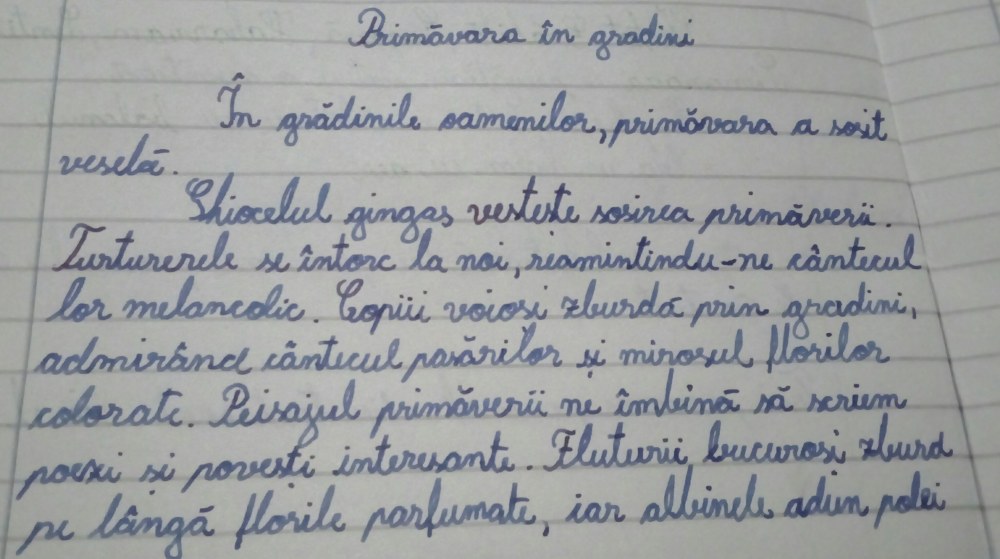 Primăvara în gradini
În grădinile oamenilor, primăvara a sosit
veselă.
Ghiocelul gingaș vestește sosirea primăverii.
Turturerele se întorc la noi, reamintindu-ne cântecul
lor melancolic. Copiii voioși zburdă prin gradini,
admirând cântecul pasărilor și mirosul florilor
colorate. Peisajul primăverii ne îmbină să scriem
poezi și povești interesante. Fluturii bucuroși zburd
pe lângă florile parfumate, iar albinele adun polei